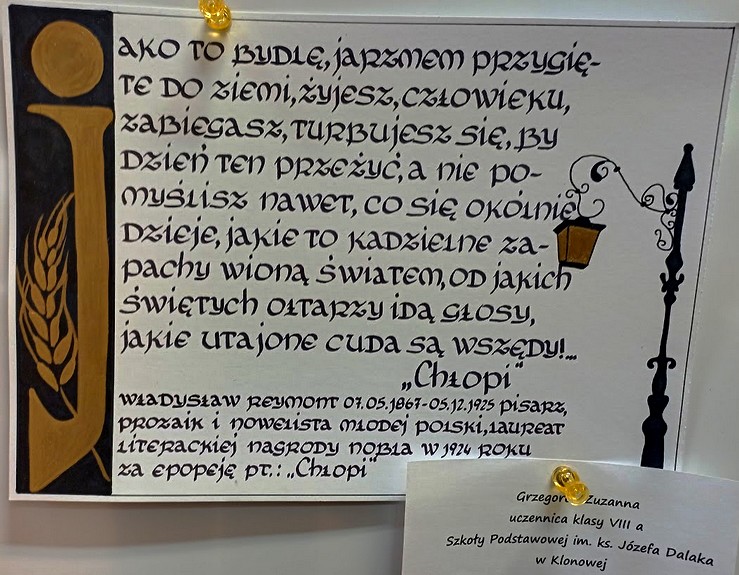 JAKO TO BYDLĘ, JARZMEM PRZYGIĘ-
TE DO ZIEMI, ŻYJESZ, CZŁOWIEKU,
ZABIEGASZ, TURBUJESZ SIĘ, BY
DZIEŃ TEN PRZEŻYĆ, A NIE PO-
MYŚLISZ NAWET, CO SIĘ OKÓLNIE
DZIEJE, JAKIE TO KADZIELNE ZA-
PACHY WIONĄ ŚWIATEM, OD JAKICH
ŚWIĘTYCH OŁTARZY IDĄ GŁOSY,
JAKIE UTAJONE CUDA SĄ WSZĘDY!...
„Chłopi”
WŁADYSŁAW REYMONT 07.05.1867-05.12.1925 PISARZ,
PROZAIK I NOWELISTA MŁODEJ POLSKI, LAUREAT
LITERACKIEJ NAGRODY NOBLA W 1924 ROKU
ZA EPOPEJĘ PT.: „Chłopi”
Zuzanna
uczennica klasy VIII a
Szkoły Podstawowej im. ks. Józefa Dalaka
w Klonowej